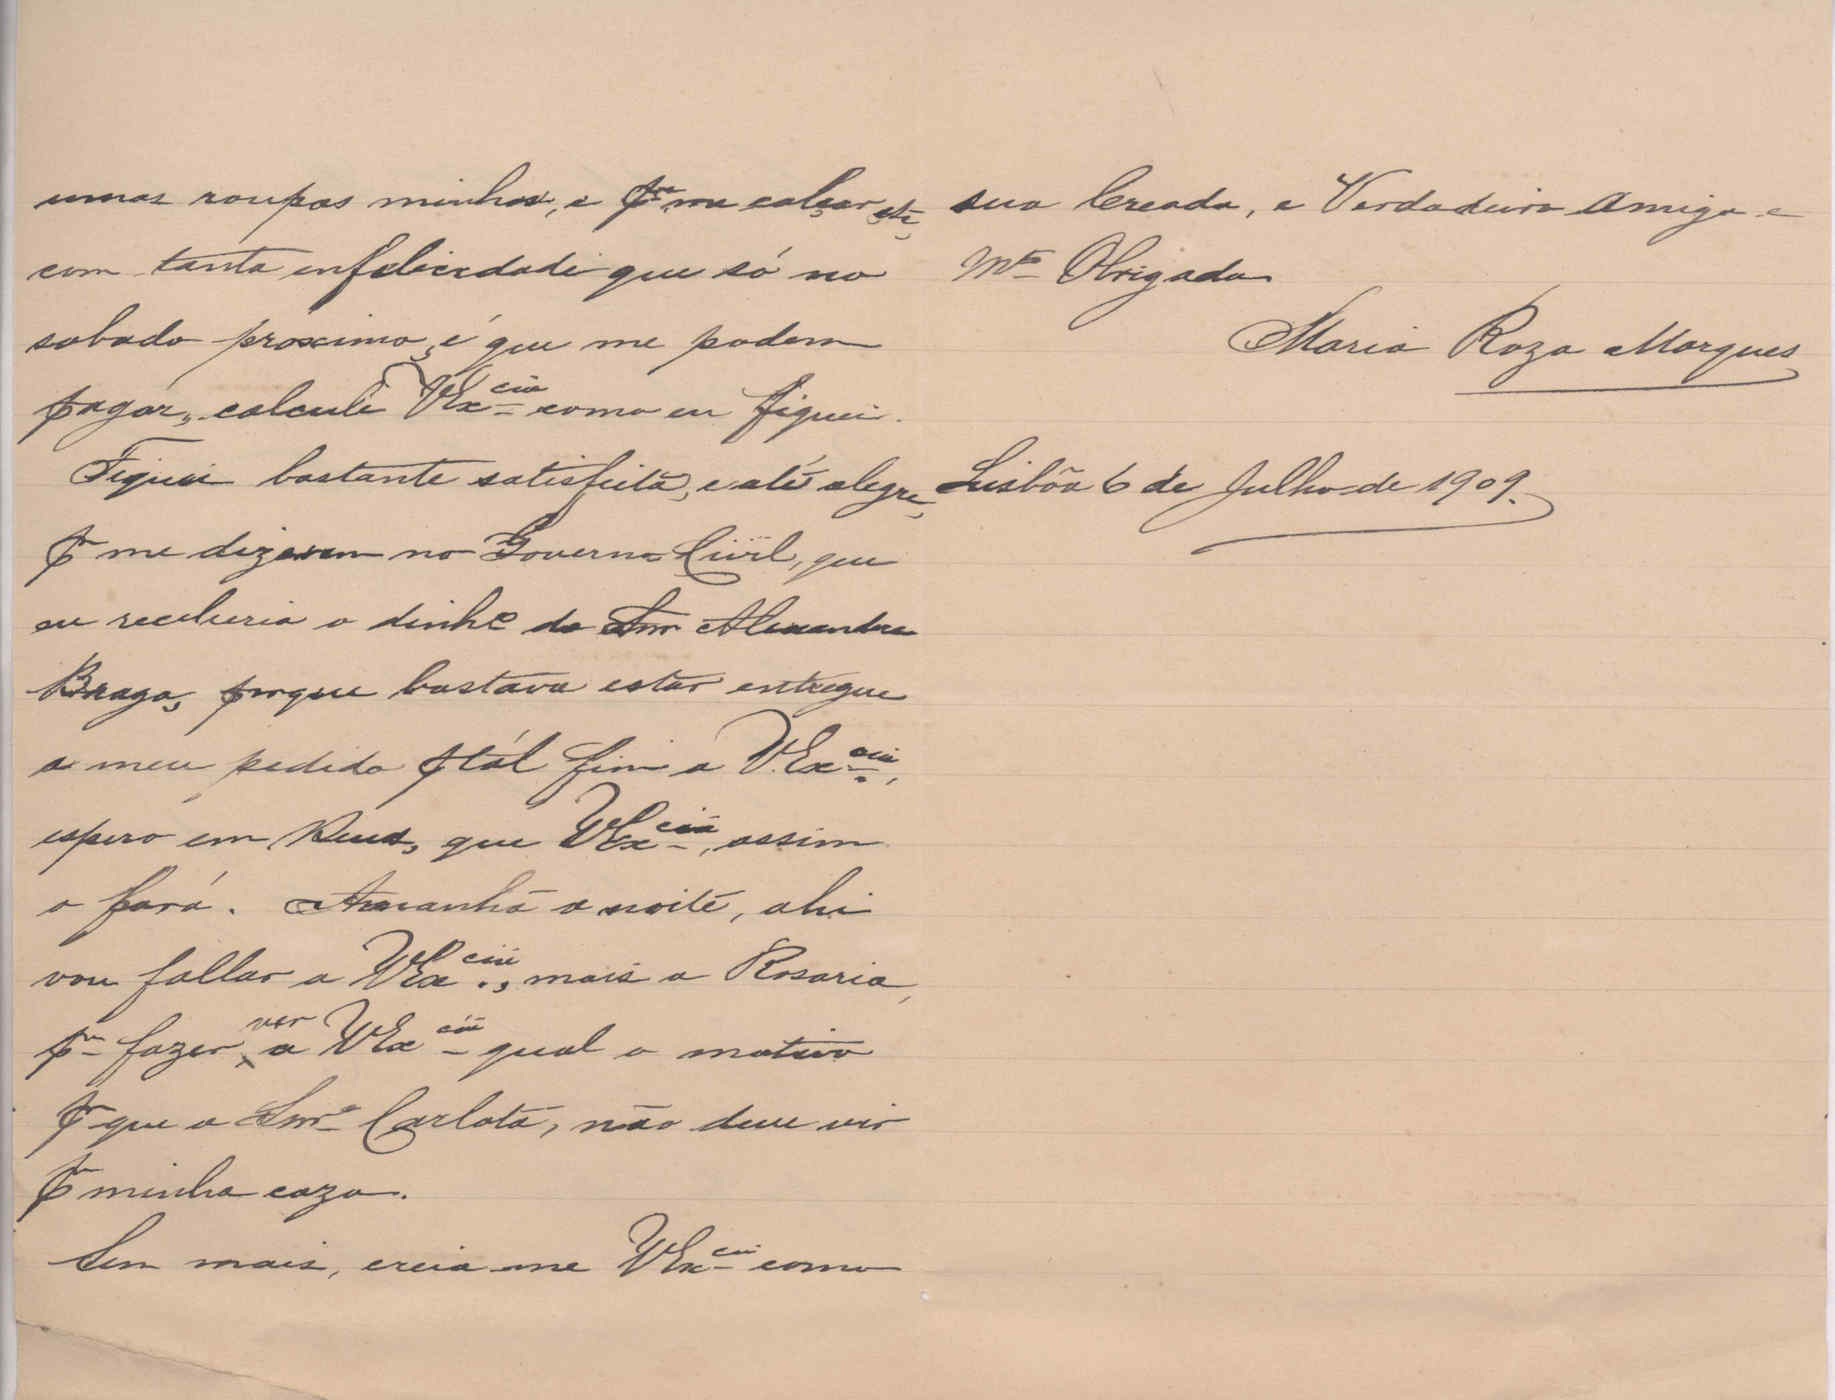 umas roupas minhas, e pra me calçar, etc,
com tanta infelicidade que só no
sabado proximo, é que me podem
pagar, calcule VExcia como eu fiquei.
Fiquei bastante satisfeita, e até alegre,
pr me dizerem no Governo Civil, que
eu receberia o dinhº do Snr Alexandre
Braga, porque bastava estar entregue
a meu pedido p tál fim a V.Excia,
espero em Deus, que VExcia, assim
o fará. Amanhã a noite, ahi
vou fallar a VExcia., mais a Rosaria,
pra fazer ver a VExcia qual o motivo
pr que a Snra Carlota, não deve vir
pa minha caza.
Sem mais, creia-me VExcia como
sua Creada, e Verdadeira Amiga e
Mto Obrigada
Maria Roza Marques
Lisbôa 6 de Julho de 1909.